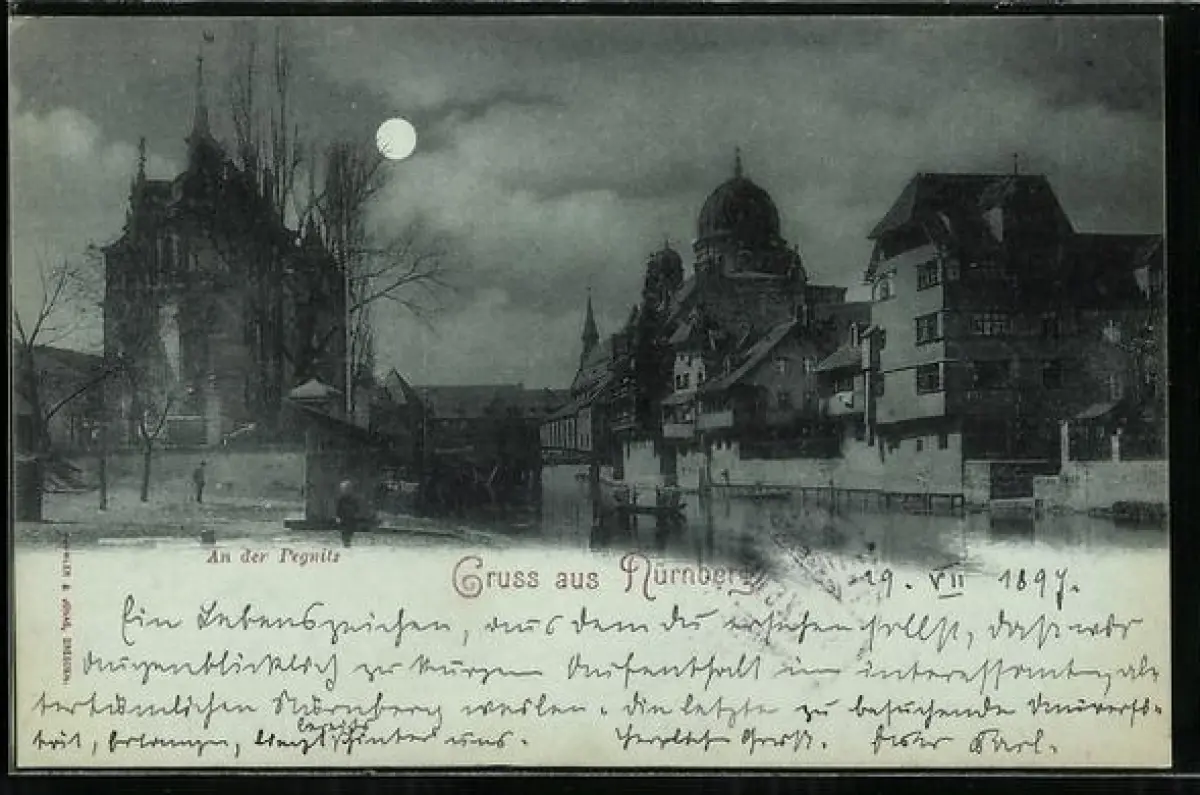 An der Pegnitz
Gruss aus Nürnberg
19. VII 1897.
Ein Lebenszeichen, aus dem du ersehen sollst, daß wir
augenblicklich zu kurzem Aufenthalt im interessanten, al-
tertümlichen Nürnberg weilen. Die letzte zu besuchende Universi-
tät, Erlangen, liegt bereits hinter uns. Herzlichen Gruß. Karl.
DRESDEN.